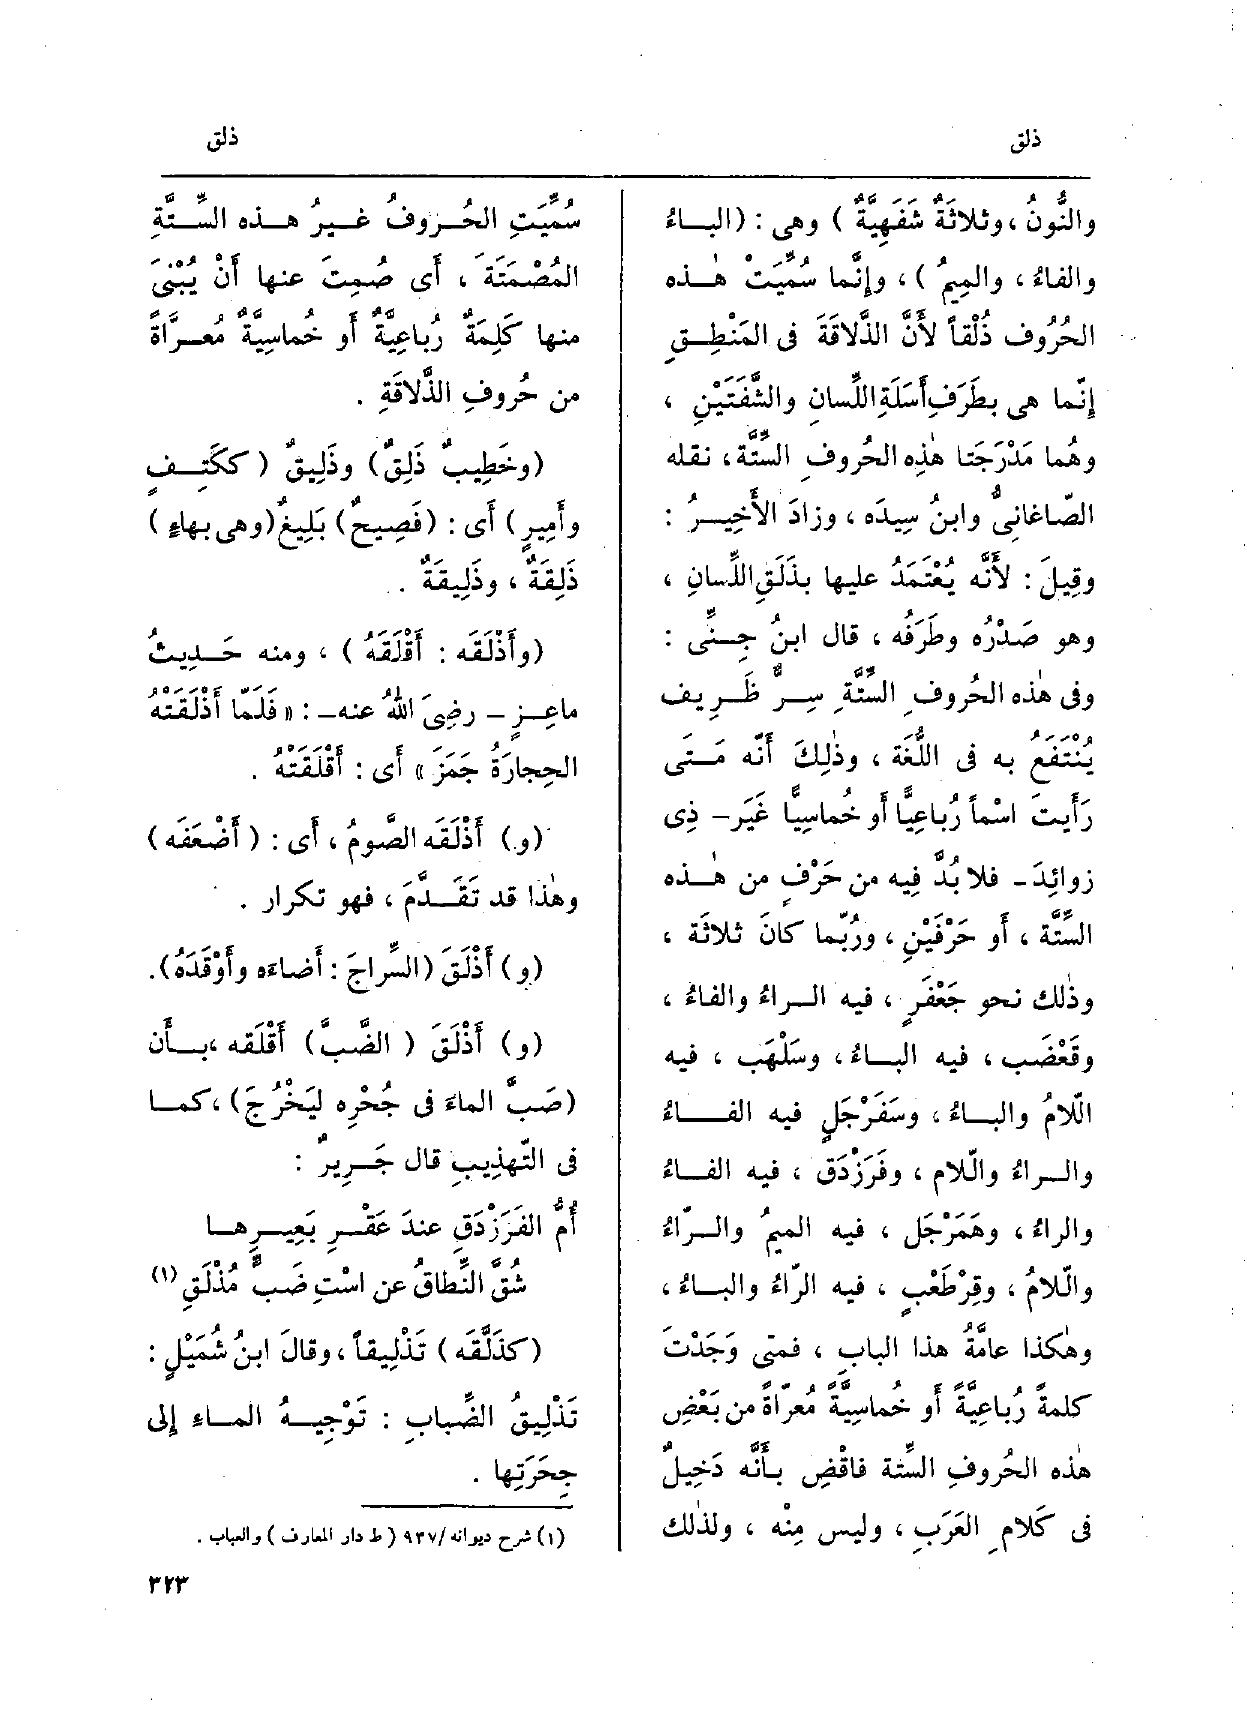 ذلق
ذلق
والنُّون ، وثلاثةٌ شَفَهِيةٌ ) وهى : (الباءُ
والفاءُ ، والمِيمُ ) ، وإنَّما سُمِّيَتْ هٰذه
الحُرُوف ذُلْقاً لأَنَّ الذَّلاقَةَ فى المَنْطِقِ
إنّما هى بطَرَفِ أَسَلَةِ اللِّسان والشَّفَتَيْنِ ،
وهُما مَدْرَجَتا هٰذِه الحُروفِ السِّتَّة ، نقله
الصّاغانِىُّ وابنُ سِيدَه ، وزادَ الأَخِيرُ :
وقِيلَ : لأَنَّه يُعْتَمَدُ عليها بذَلَقِ اللِّسانِ ،
وهو صَدْرُه وطَرَفُه ، قال ابنُ جِنِّى :
وفى هٰذه الحُروفِ السِّتَّةِ سِرٌّ ظَرِيف
يُنْتَفَع به فى اللُّغَة ، وذٰلِكَ أَنّه مَتَى
رَأَيتَ اسْماً رُباعِيًّا أَو خُماسِيًّا غَيَر - ذِى
زوائِدَ - فلا بُدَّ فِيه من حَرْفٍ من هٰذه
السِّتَّة ، أَو حَرْفَيْنِ ، ورُبّما كانَ ثلاثة ،
وذٰلك نحو جَعْفَرٍ ، فيه الراءُ والفاءُ ،
وقَعْضَب ، فيه الباءُ ، وسَلْهَب ، فيه
اللّامُ والباءُ ، وسَفَرْجَلٍ فيه الفاءُ
والراءُ واللّام ، وفَرَزْدَق ، فيه الفاءُ
والراءُ ، وهَمَرْجَل ، فيه الميمُ والرّاءُ
واللّامُ ، وقِرْطَعْبٍ ، فيه الرّاءُ والباءُ ،
وهٰكذا عامَّةُ هذا البابِ ، فمتى وَجَدْتَ
كلمةً رُباعِيَّةً أَو خُماسِيَّةً مُعرّاةً من بَعْضِ
هٰذه الحُروفِ السِّتة فاقْضِ بأَنَّه دَخِيلٌ
فى كَلامِ العَرَبِ ، وليس مِنْه ، ولذٰلك
سُمِّيَتِ الحُروفُ غيرُ هذه السِّتَّةِ
المُصْمَتَةَ ، أَى صُمِتَ عنها أَنْ يُبْنَى
منها كَلِمَةٌ رُباعِيَّةٌ أَو خُماسِيَّةٌ مُعرَّاةً
من حُروفِ الذَّلاقَةِ .
(وخَطِيبٌ ذَلِقٌ) وذَلِيقٌ ( ككَتِفٍ
وأَمِيرٍ ) أَى : (فَصِيحٌ) بَلِيغٌ (وهى بهاءٍ )
ذَلِقَةٌ ، وذَلِيقَةٌ .
(وأَذْلَقَه : أَقْلَقَهُ ) ، ومنه حَدِيثُ
ماعِزٍ - رضِىَ اللهُ عنه - : « فَلَمّا أَذْلَقَتْهُ
الحِجارَةُ جَمَزَ » أَى : أَقْلَقَتْهُ .
(و) أَذْلَقَه الصَّومُ ، أَى : ( أَضْعَفَه )
وهٰذا قد تَقَدَّمَ ، فهو تكرار .
(و) أَذْلَقَ (السِّراجَ : أَضاءَه وأَوْقَدَهُ).
(و) أَذْلَقَ ( الضَّبَّ) أَقْلَقه ، بأَن
(صَبَّ الماءَ فى جُحْرِه لِيَخْرُجَ) ، كما
فى التَّهذِيبِ قال جَرِيرٌ :
أُمُّ الفَرَزْدَقِ عندَ عَقْرِ بَعِيرِها
شُقَّ النِّطاقُ عن اسْتِ ضَبٍّ مُذْلَقِ (١)
(كذَلَّقَه ) تَذْلِيقاً ، وقالَ ابنُ شُمَيْلٍ :
تَذْلِيقُ الضِّبابِ : تَوْجِيهُ الماءِ إلى
جِحَرَتِها .
(١) شرح ديوانه / ٩٣٧ ( ط دار المعارف ) والعباب .
٣٢٣